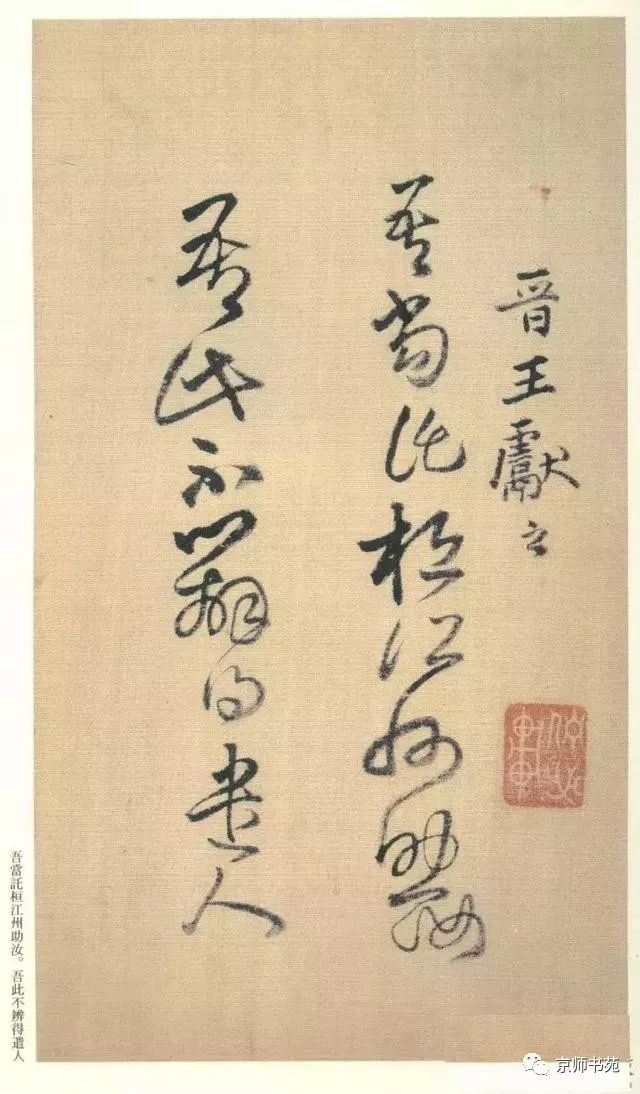 晋王獻之
吾當託桓江州助汝
吾此不辨得遣人
吾當託桓江州助汝。吾此不辨得遣人
京师书苑